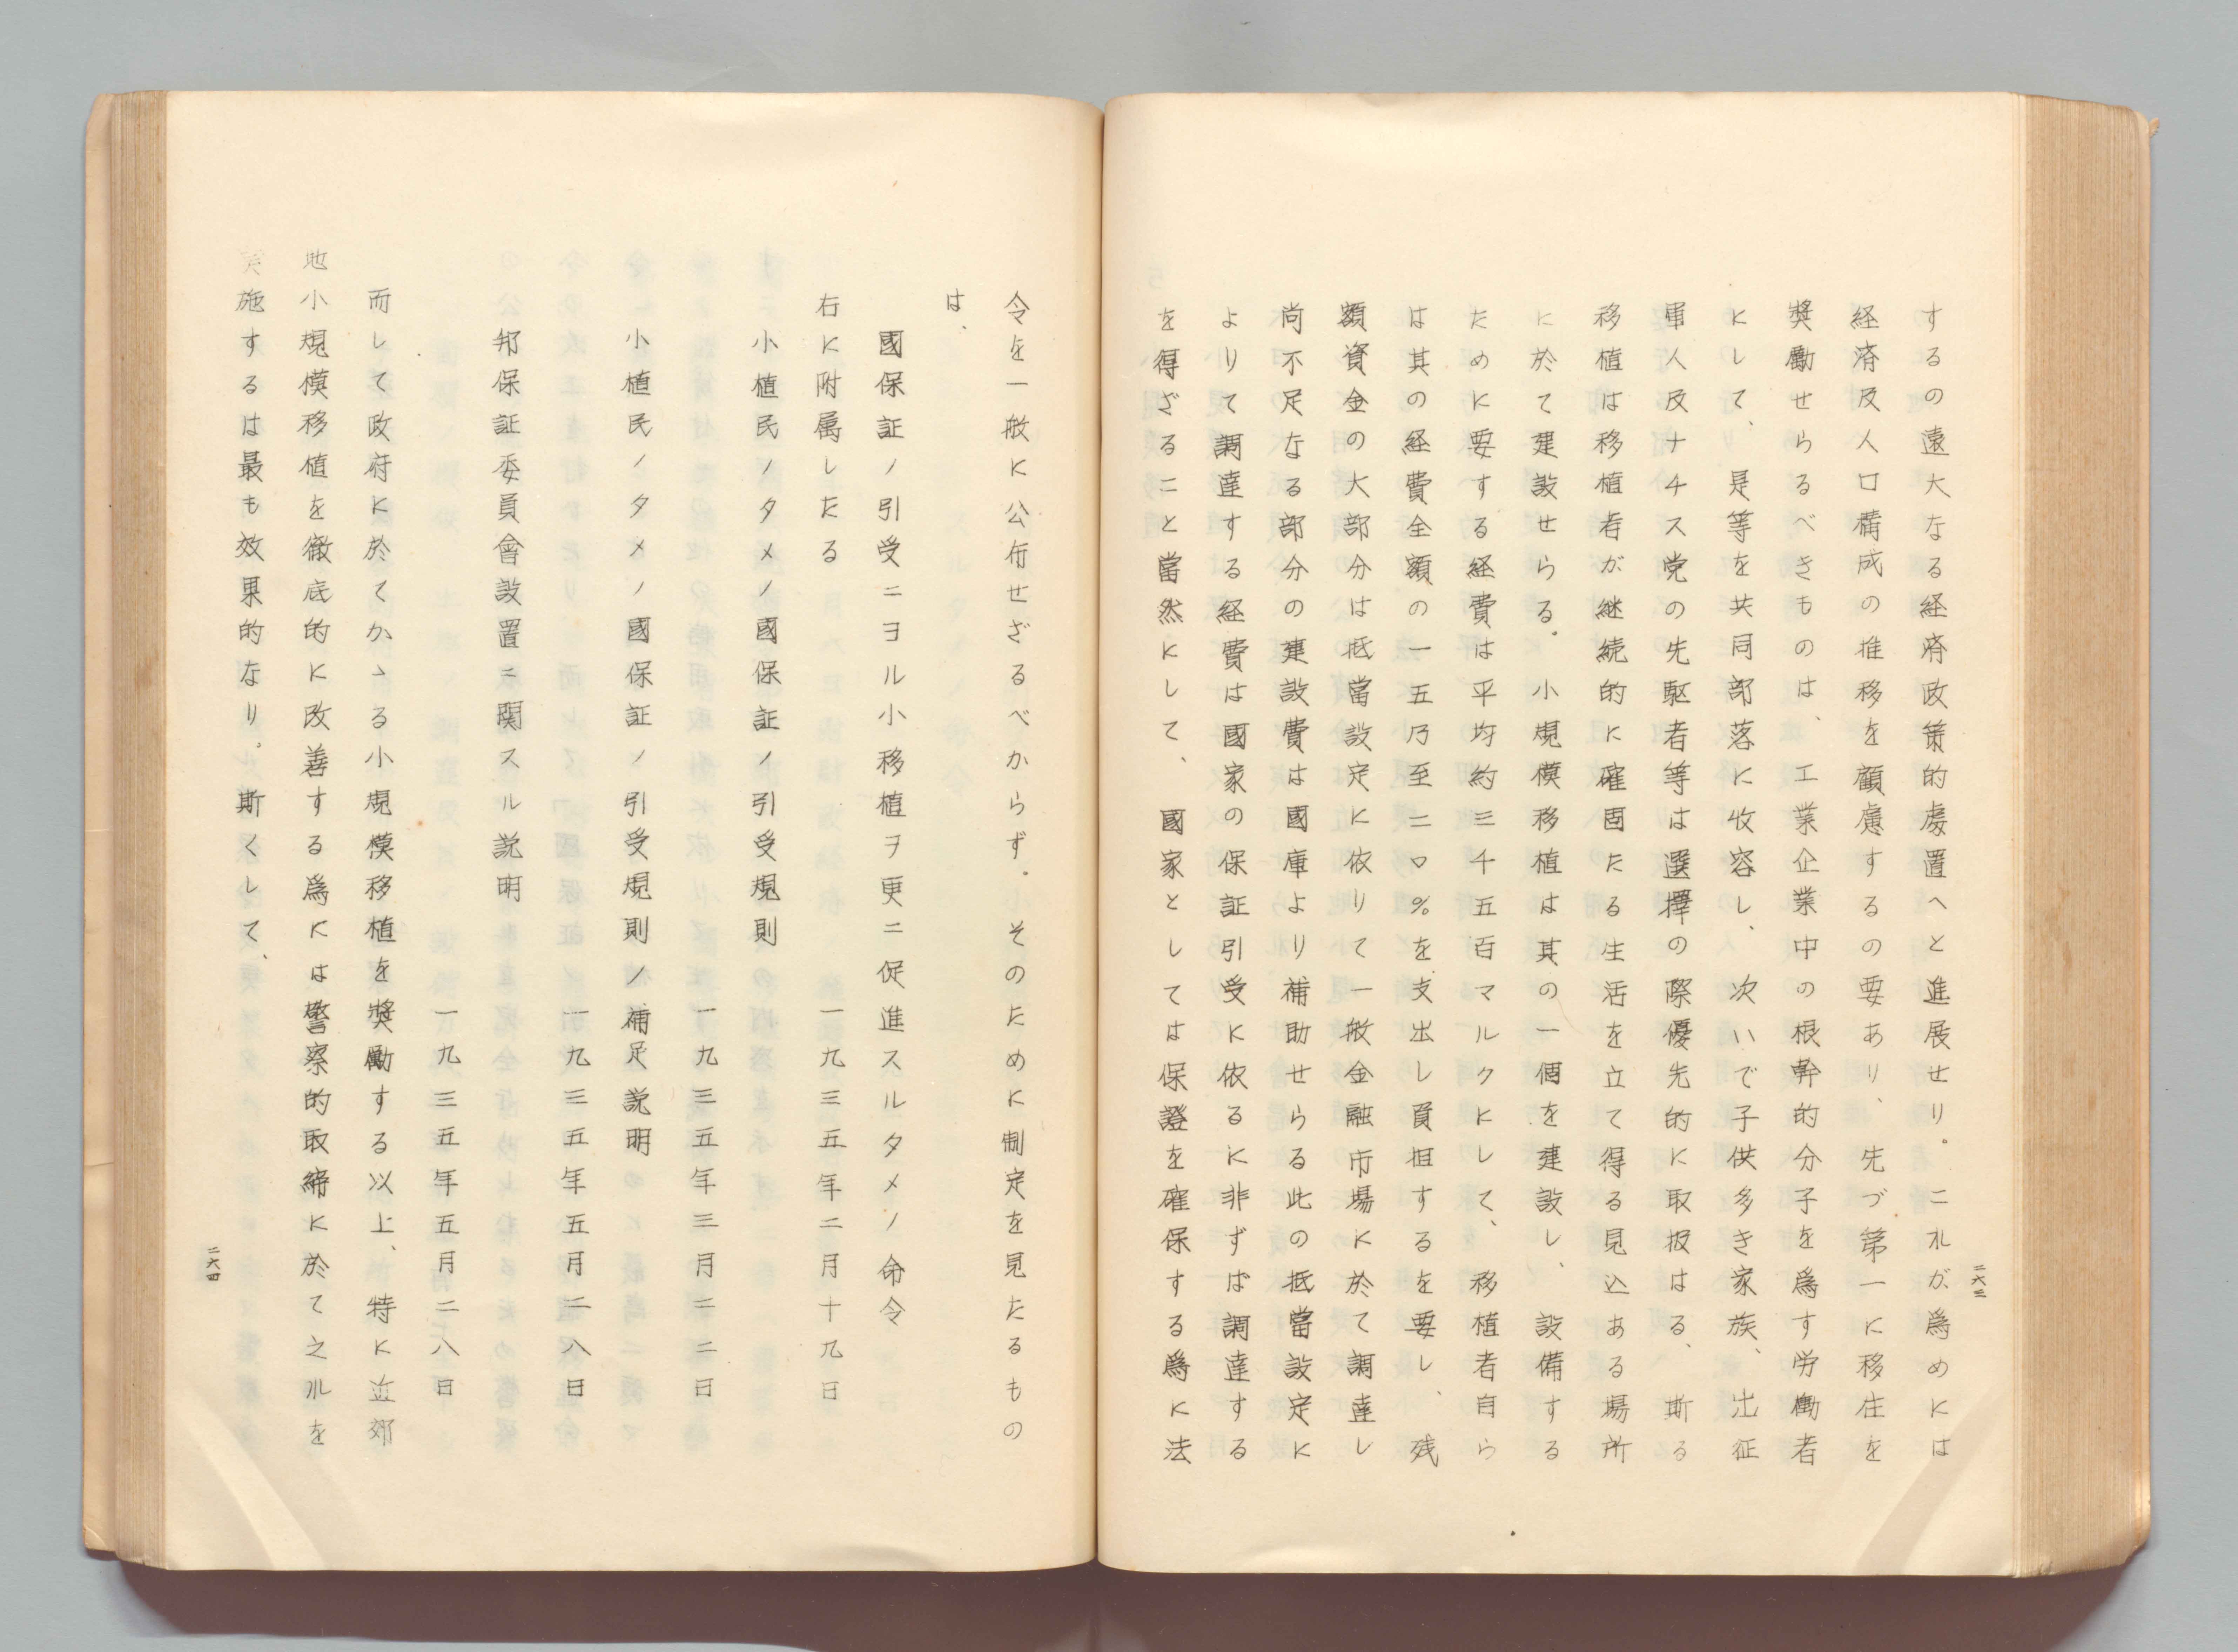 するの遠大なる経済政策的處置へと進展せり。これが爲めには
経済及人口構成の推移を顧慮するの要あり、先づ第一に移住を
奬勵せらるべきものは、工業企業中の根幹的分子を爲す労働者
にして、是等を共同部落に收容し、次いで子供多き家族、出征
軍人及ナチス党の先駆者等は選擇の際優先的に取扱はる、斯る
移植は移植者が継続的に確固たる生活を立て得る見込ある場所
に於て建設せらる。小規模移植は其の一個を建設し、設備する
ために要する経費は平均約三千五百マルクにして、移植者自ら
は其の経費全額の一五乃至二〇％を支出し負担するを要し、残
額資金の大部分は抵當設定に依りて一般金融市場に於て調達し
尚不足なる部分の建設費は國庫より補助せらる此の抵當設定に
よりて調達する経費は國家の保証引受に依るに非ずば調達する
を得ざること當然にして、國家としては保證を確保する爲に法
二六三
令を一般に公布せざるべからず。そのために制定を見たるもの
は、
國保証ノ引受ニヨル小移植ヲ更ニ促進スルタメノ命令
右に附属したる　一九三五年二月十九日
小植民ノタメノ國保証ノ引受規則
一九三五年三月二二日
小植民ノタメノ國保証ノ引受規則ノ補足説明
一九三五年五月二八日
邦保証委員會設置ニ関スル説明
一九三五年五月二八日
而して政府に於てかゝる小規模移植を奬勵する以上、特に近郊
地小規模移植を徹底的に改善する爲には警察的取締に於て之れを
実施するは最も效果的なり。斯くして、
二六四